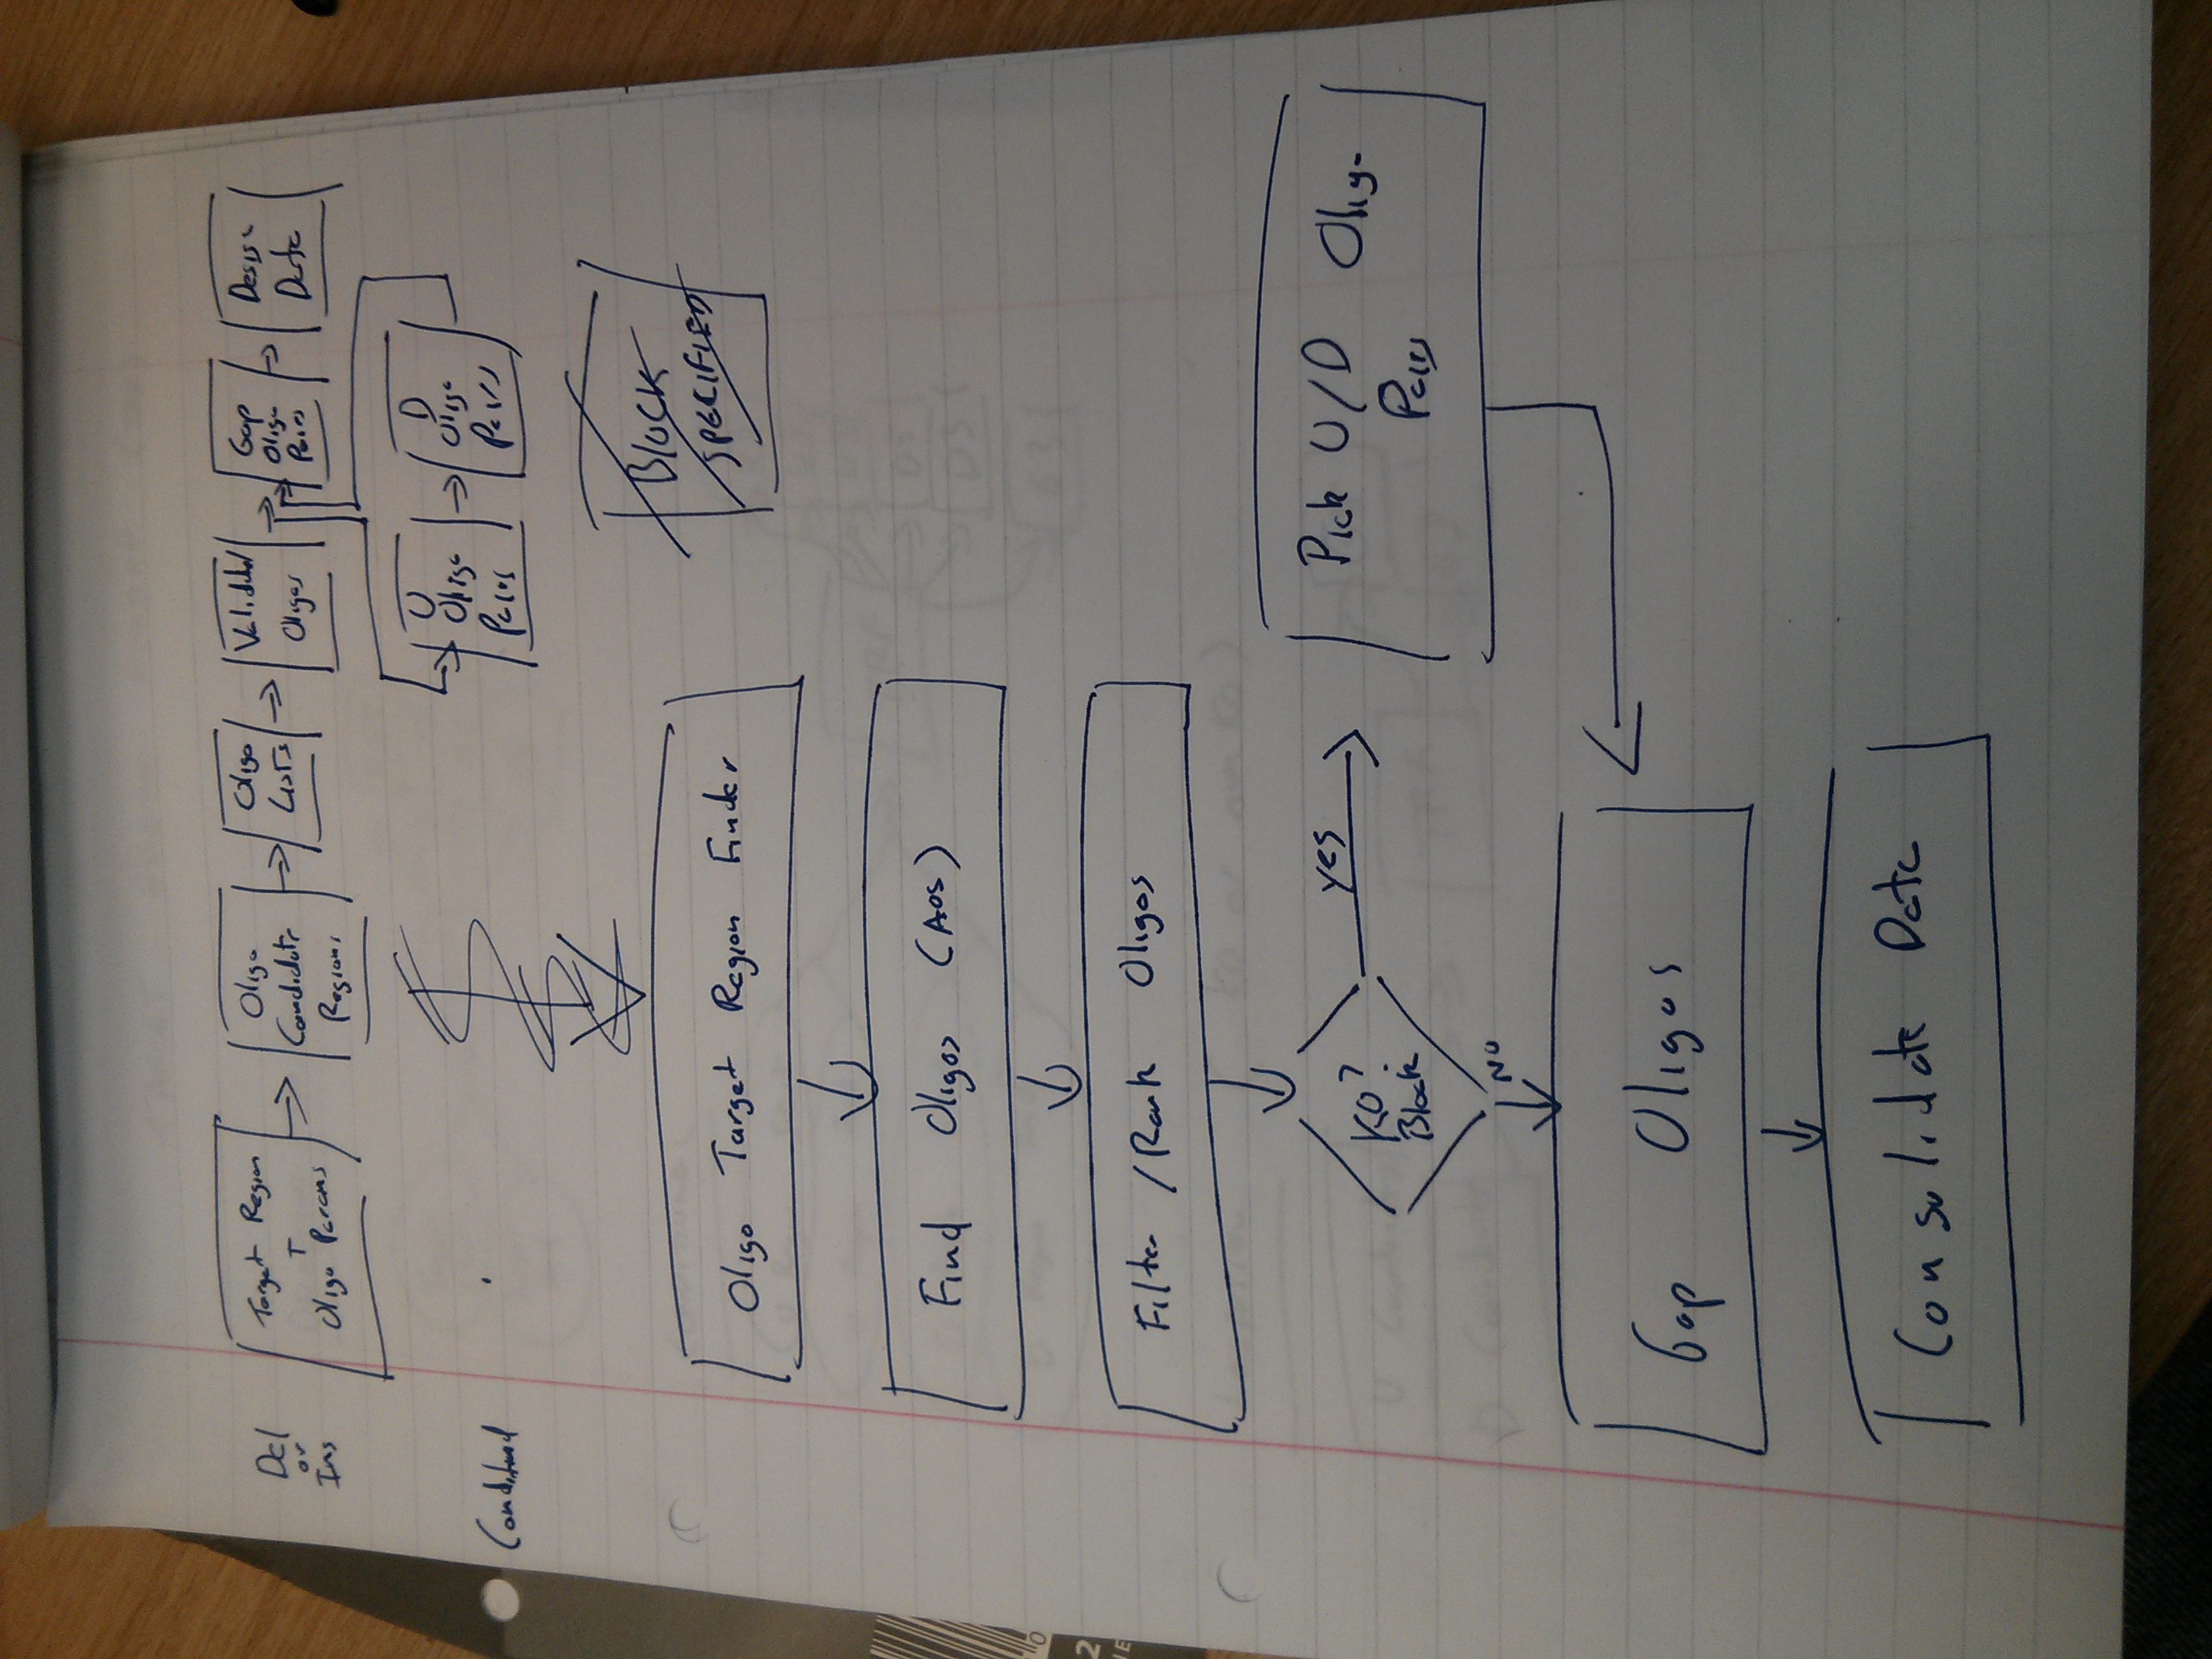 Del
or
Ins
Target Region
+
Oligo Params
Oligo
Candidate
Regions
Oligo
Lists
Validated
Oligos
Gap
Oligo
Pairs
Design
Data
Conditional
U
Oligo
Pairs
D
Oligo
Pairs
BLOCK
SPECIFIED
Oligo Target Region Finder
Find Oligos (AOS)
Filter / Rank Oligos
KO?
Block
Yes
No
Pick U/D Oligo
Pairs
Gap Oligos
Consolidate Data